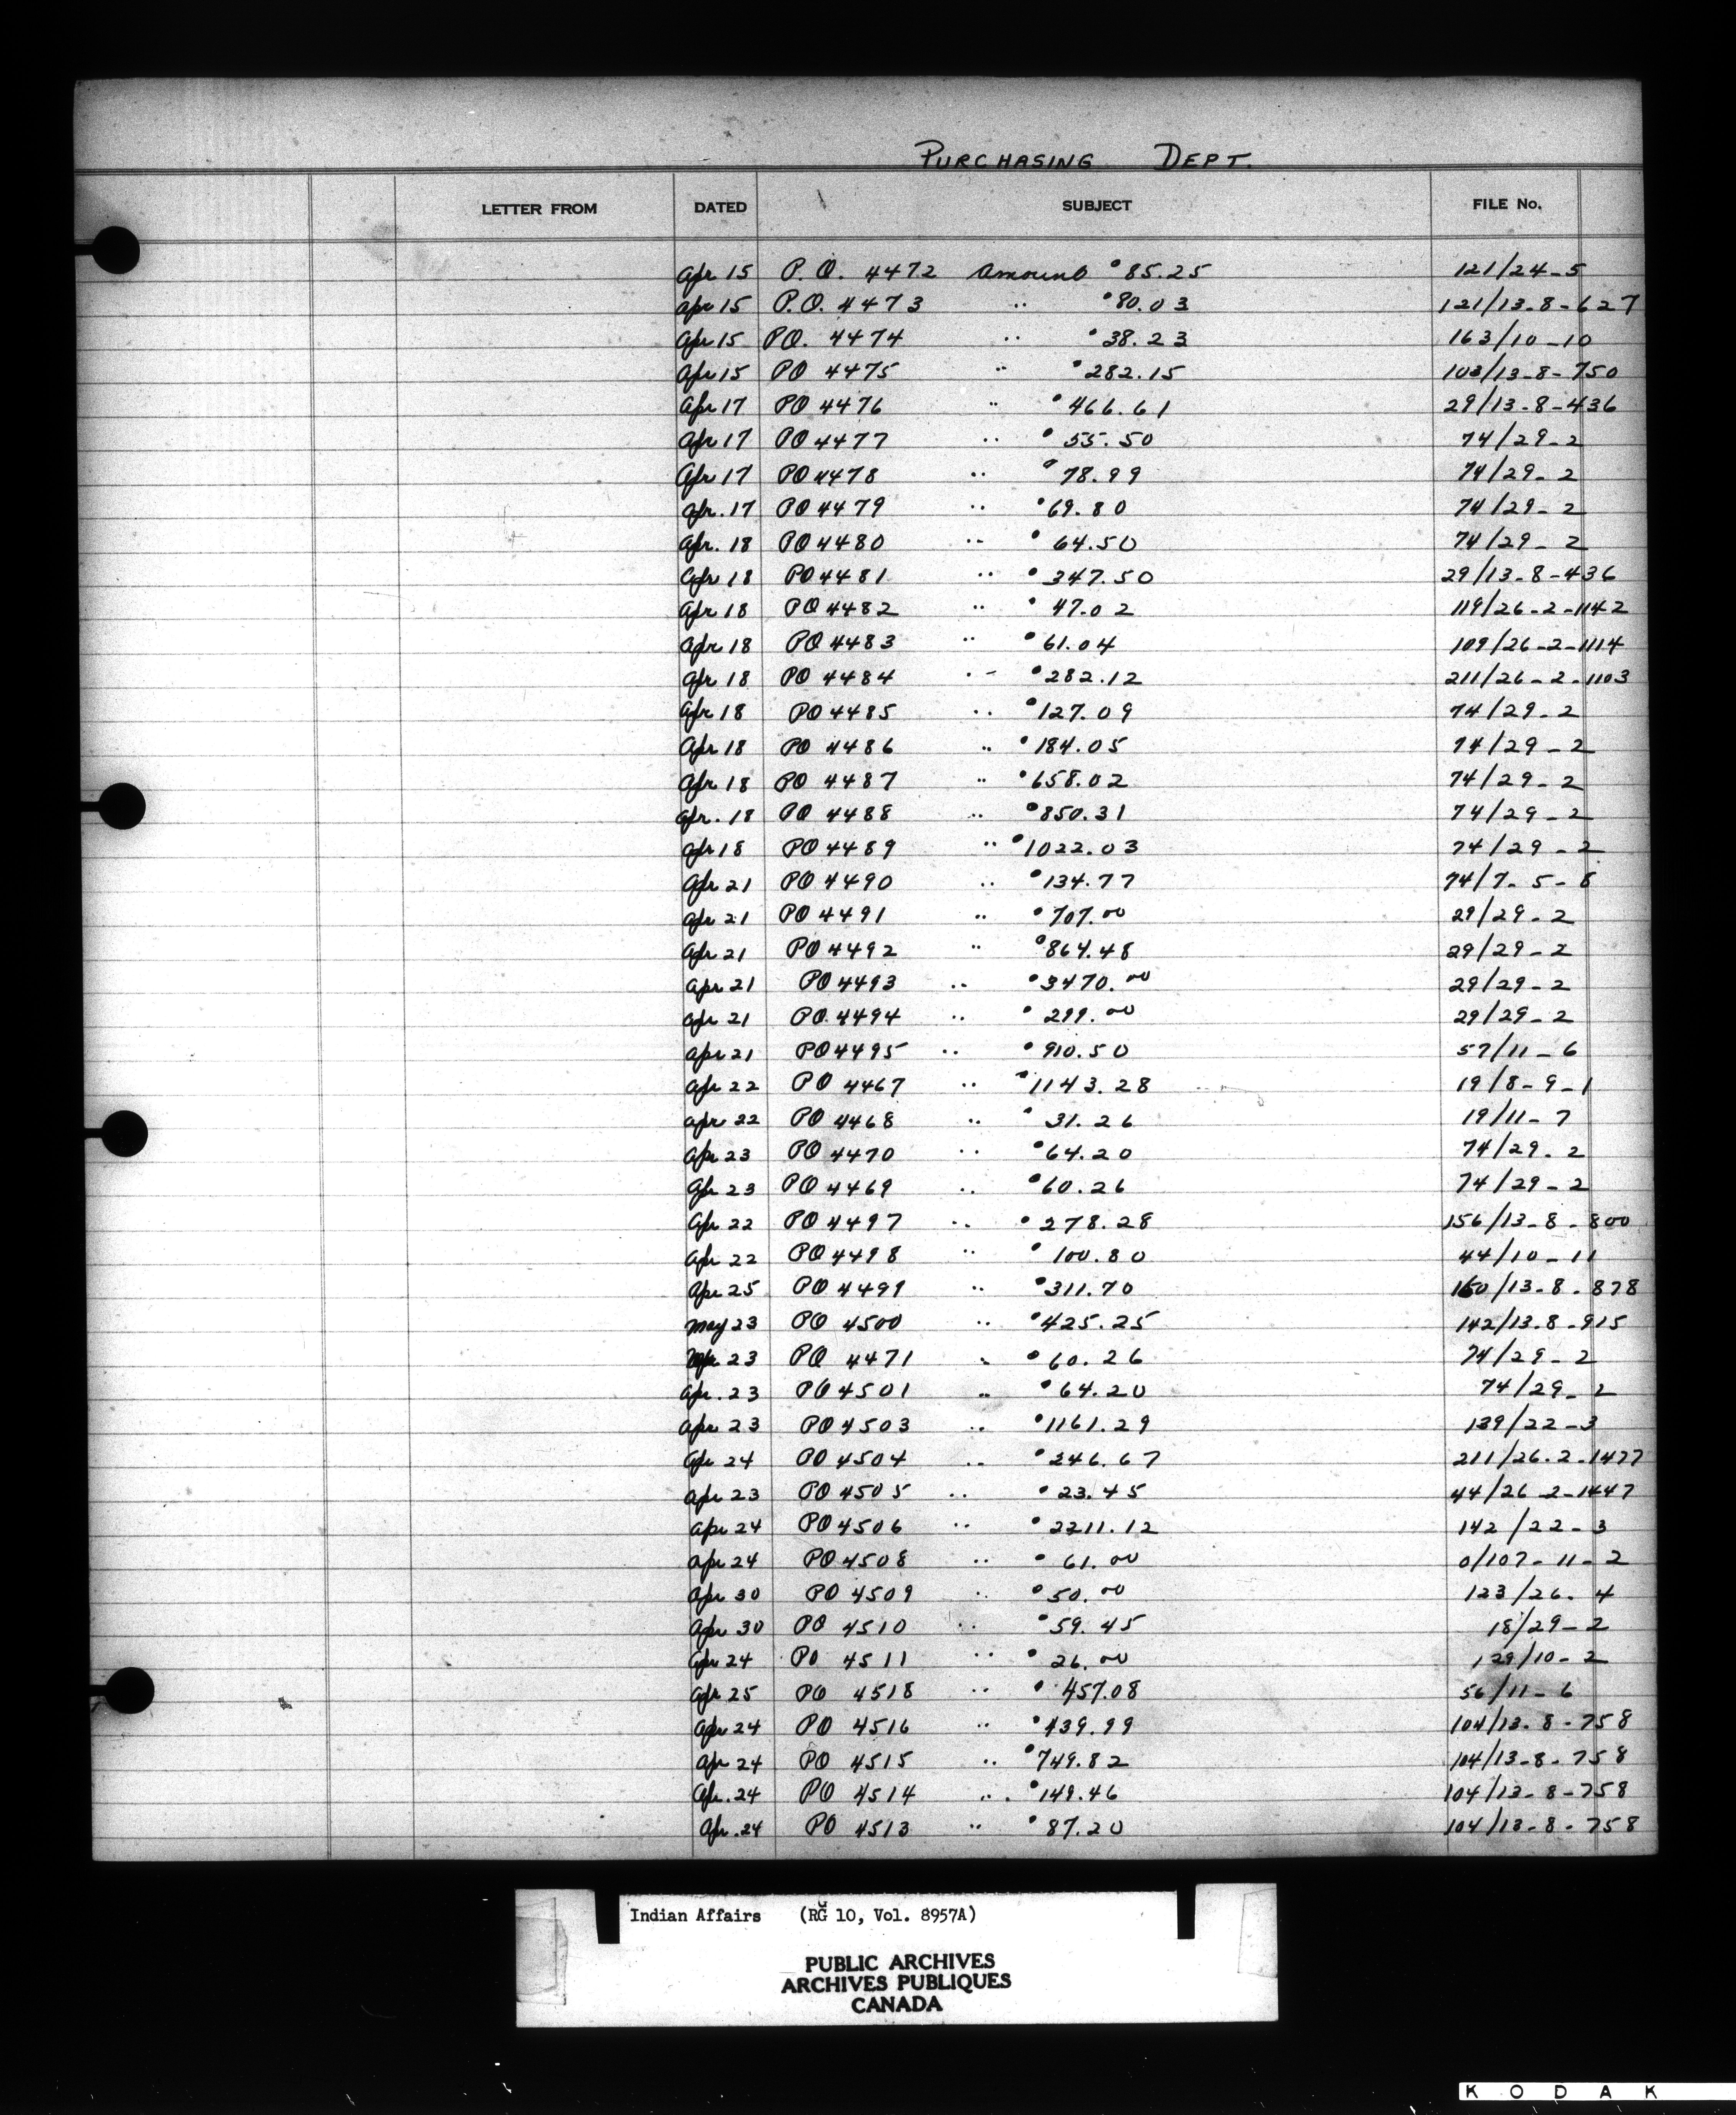 PURCHASING DEPT.
LETTER FROM DATED SUBJECT FILE No.
Apr 15 P.O. 4472 Amount $85.25 121/24-5
Apr 15 P.O. 4473 " $80.03 121/13-8-627
Apr 15 PO. 4474 " $38.23 163/10-10
Apr 15 PO 4475 " $282.15 103/13-8-750
Apr 17 PO 4476 " $466.61 29/13-8-436
Apr 17 PO 4477 " $55.50 74/29-2
Apr 17 PO 4478 " $78.99 74/29-2
Apr. 17 PO 4479 " $69.80 74/29-2
Apr. 18 PO 4480 " $64.50 74/29-2
Apr 18 PO 4481 " $347.50 29/13-8-436
Apr 18 PO 4482 " $47.02 119/26-2-1142
Apr 18 PO 4483 " $61.04 109/26-2-1114
Apr 18 PO 4484 " $282.12 211/26-2-1103
Apr 18 PO 4485 " $127.09 74/29-2
Apr 18 PO 4486 " $184.05 74/29-2
Apr 18 PO 4487 " $658.02 74/29-2
Apr. 18 PO 4488 " $850.31 74/29-2
Apr 18 PO 4489 " $1022.03 74/29-2
Apr 21 PO 4490 " $134.77 74/7-5-8
Apr 21 PO 4491 " $707.00 29/29-2
Apr 21 PO 4492 " $864.48 29/29-2
Apr 21 PO 4493 " $3470.00 29/29-2
Apr 21 PO. 4494 " $299.00 29/29-2
Apr 21 PO 4495 " $910.50 57/11-6
Apr 22 PO 4467 " $1143.28 19/8-9-1
Apr 22 PO 4468 " $31.26 19/11-7
Apr 23 PO 4470 " $64.20 74/29-2
Apr 23 PO 4469 " $60.26 74/29-2
Apr 22 PO 4497 " $278.28 156/13-8-800
Apr 22 PO 4498 " $100.80 44/10-11
Apr 25 PO 4499 " $311.70 150/13-8-878
May 23 PO 4500 " $425.25 142/13.8-915
Apr 23 PO 4471 " $60.26 74/29-2
Apr. 23 PO 4501 " $64.20 74/29-2
Apr 23 PO 4503 " $1161.29 139/22-3
Apr 24 PO 4504 " $246.67 211/26.2-1477
Apr 23 PO 4505 " $23.45 44/26-2-1447
Apr 24 PO 4506 " $2211.12 142/22-3
Apr 24 PO 4508 " $61.00 0/107-11-2
Apr 30 PO 4509 " $50.00 123/26-4
Apr 30 PO 4510 " $59.45 18/29-2
Apr 24 PO 4511 " $26.00 129/10-2
Apr 25 PO 4518 " $457.08 56/11-6
Apr 24 PO 4516 " $439.99 104/13-8-758
Apr 24 PO 4515 " $749.82 104/13-8-758
Apr. 24 PO 4514 " $149.46 104/13-8-758
Apr. 24 PO 4513 " $87.20 104/13-8-758
Indian Affairs (RG 10, Vol. 8957A)
PUBLIC ARCHIVES
ARCHIVES PUBLIQUES
CANADA
KODAK